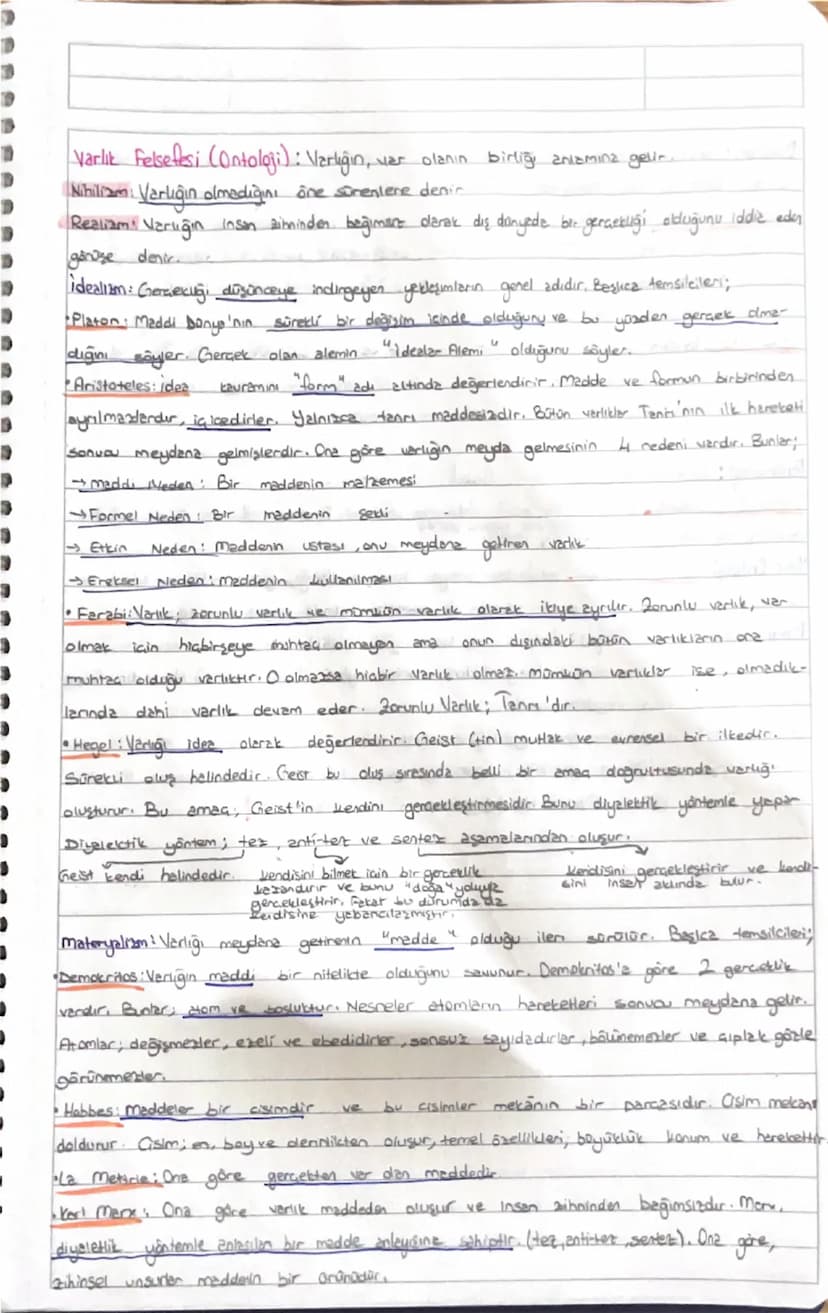 Varlık Felsefesi (Ontoloji): Varlığın, var olanın birliği anlamına gelir.
Nihilizm: Varlığın olmadığını öne sürenlere denir
Realizm: Varlığın insan zihninden bağımsız olarak dış dünyada bir gerçekliği olduğunu iddia eden
görüşe denir.
İdealizm: Gerçekliği düşünceye indirgeyen yaklaşımların genel adıdır. Başlıca temsilcileri;
•Platon: Maddi Dünya'nın sürekli bir değişim içinde olduğunu ve bu yüzden gerçek olma-
dığını söyler. Gerçek olan alemin "İdealar Alemi" olduğunu söyler.
•Aristoteles: idea kavramını "form" adı altında değerlendirir. Madde ve formun birbirinden
ayrılmazlardır, iç içedirler. Yalnızca tanrı maddesizdir. Bütün varlıklar Tanrı'nın ilk hareketi
sonucu meydana gelmişlerdir. Ona göre varlığın meyda gelmesinin 4 nedeni vardır. Bunlar;
→ maddi Neden: Bir maddenin malzemesi
→ Formel Neden: Bir maddenin şekli
→ Etkin Neden: Maddenin ustası, onu meydana getiren varlık
→ Ereksel Neden: maddenin kullanılması
• Farabi: Varlık; zorunlu varlık ve mümkün varlık olarak ikiye ayrılır. Zorunlu varlık, var
olmak için hiçbirşeye muhtaç olmayan ama onun dışındaki bütün varlıkların ona
muhtaç olduğu varlıktır. O olmazsa hiçbir varlık olmaz. Mümkün varlıklar ise, olmadık-
larında dahi varlık devam eder. Zorunlu Varlık; Tanrı'dır.
• Hegel: Varlığı idea olarak değerlendirir. Geist (tin) mutlak ve evrensel bir ilkedir.
Sürekli oluş halindedir. Geist bu oluş sırasında belli bir amaç doğrultusunda varlığı
oluşturur. Bu amaç; Geist'in kendini gerçekleştirmesidir. Bunu diyalektik yöntemle yapar
Diyalektik yöntem; tez, anti-tez ve sentez aşamalarından oluşur.
Geist kendi halindedir.
kendisini bilmek için bir gerçeklik
kazandırır ve bunu "doğa" yoluyla
gerçekleştirir. Fakat bu durumda da
kendisine yabancılaşmıştır.
kendisini gerçekleştirir ve kendi-
sini insan aklında bulur.
Materyalizm: Varlığı meydana getirenin "madde" olduğu ileri sürülür. Başlıca temsilcileri;
•Demokritos: Varlığın maddi bir nitelikte olduğunu savunur. Demokritos'a göre 2 gerçeklik
vardır. Bunlar; atom ve boşluktur. Nesneler atomların hareketleri sonucu meydana gelir.
Atomlar; değişmezler, ezeli ve ebedidirler, sonsuz sayıdadırlar, bölünemezler ve çıplak gözle
görünemezler.
• Hobbes: maddeler bir cisimdir ve bu cisimler mekânın bir parçasıdır. Cisim mekanı
doldurur. Cisim; en, boy ve derinlikten oluşur, temel özellikleri; büyüklük konum ve harekettir.
•La Metirie: Ona göre gerçekten var olan maddedir.
•Karl Marx: Ona göre varlık maddeden oluşur ve insan zihninden bağımsızdır. Marx,
diyalektik yöntemle anlaşılan bir madde anlayışına sahiptir. (tez, anti-tez, sentez). Ona göre,
zihinsel unsurlar maddenin bir ürünüdür.